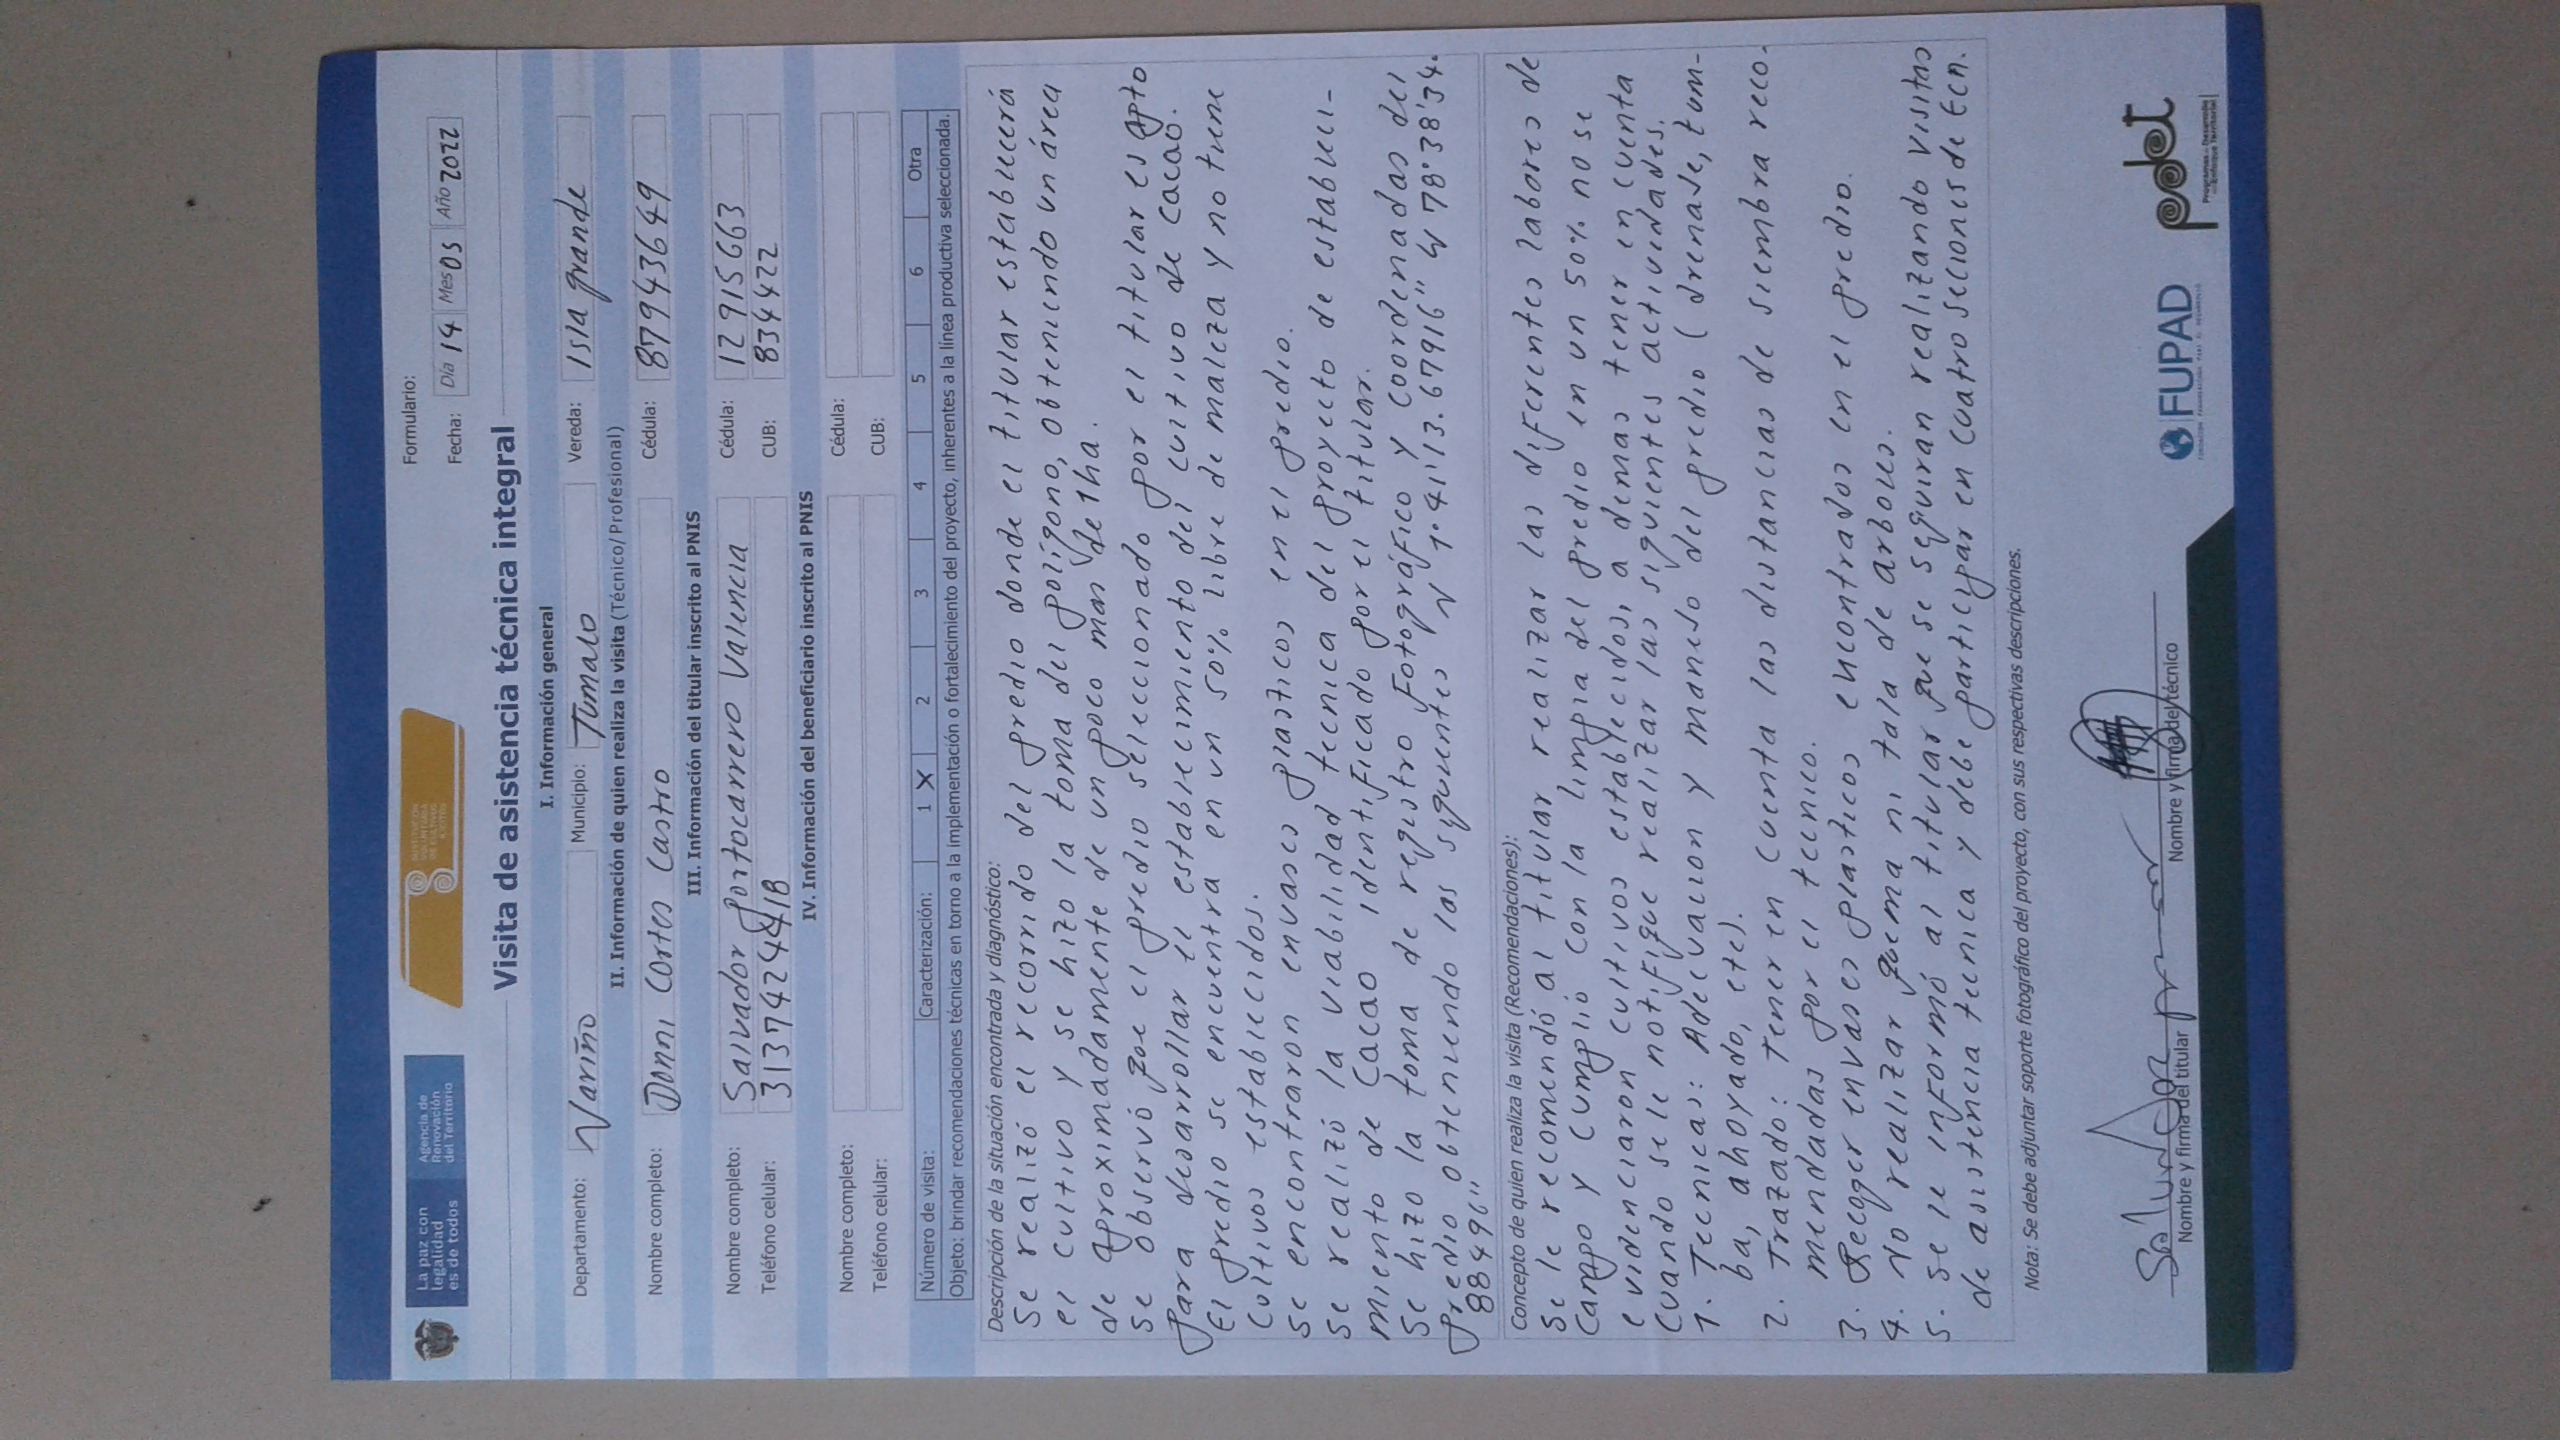 La paz con
legalidad
es de todos
Agencia de
Renovación
del Territorio
SUSTITUCIÓN
VOLUNTARIA
DE CULTIVOS
ILÍCITOS
Formulario:
Fecha: Día 14 Mes 03 Año 2022
Visita de asistencia técnica integral
I. Información general
Departamento: Nariño Municipio: Tumaco Vereda: Isla grande
II. Información de quien realiza la visita (Técnico/Profesional)
Nombre completo: Donni Cortes Castro Cédula: 87943649
III. Información del titular inscrito al PNIS
Nombre completo: Salvador portocarrero Valencia Cédula: 12915663
Teléfono celular: CUB: 834422
IV. Información del beneficiario inscrito al PNIS
Nombre completo: Cédula:
Teléfono celular: CUB:
Número de visita: Caracterización: 1 X 2 3 4 5 6 Otra
Objeto: brindar recomendaciones técnicas en torno a la implementación o fortalecimiento del proyecto, inherentes a la línea productiva seleccionada.
Descripción de la situación encontrada y diagnóstico:
Se realizó el recorrido del predio donde el titular establecerá
el cultivo y se hizo la toma del polígono, obteniendo un área
de aproximadamente de un poco mas de 1ha.
Se observó que el predio seleccionado por el titular es apto
para desarrollar el establecimiento del cultivo de cacao.
El predio se encuentra en un 50% libre de maleza y no tiene
cultivos establecidos.
Se encontraron envases plasticos en el predio.
Se realizó la viabilidad tecnica del proyecto de estableci-
miento de Cacao identificado por el titular.
Se hizo la toma de registro fotográfico y coordenadas del
predio obteniendo las siguentes N 1°41'13.67916" W 78°38'34.
88496"
Concepto de quien realiza la visita (Recomendaciones):
Se le recomendó al titular realizar las diferentes labores de
campo y cumplio con la limpia del predio en un 50% no se
evidenciaron cultivos establecidos, a demas tener en cuenta
cuando se le notifique realizar las siguientes actividades.
1. Tecnicas: Adecuacion y manejo del predio (drenaje, tum-
ba, ahoyado, etc).
2. Trazado: Tener en cuenta las distancias de siembra reco-
mendadas por el tecnico.
3. Recoger envases plasticos encontrados en el predio.
4. No realizar quema ni tala de arboles.
5. Se le informó al titular que se seguiran realizando visitas
de asistencia tecnica y debe participar en cuatro secciones de Ecn.
Nota: Se debe adjuntar soporte fotográfico del proyecto, con sus respectivas descripciones.
Salvador
Nombre y firma del titular
Nombre y firma del técnico
FUPAD
pdet